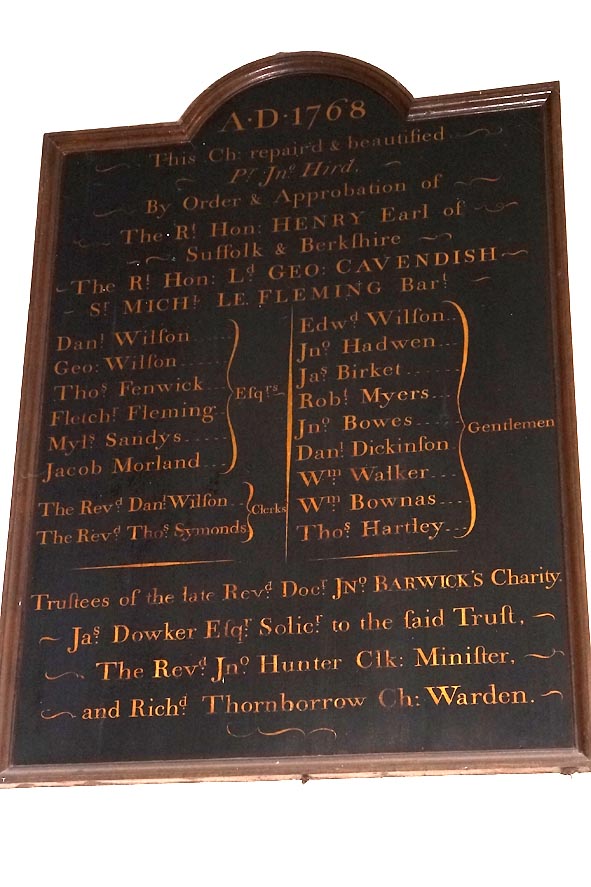 A·D·1768
This Ch: repair'd & beautified
Pr. Jno. Hird,
By Order & Approbation of
The Rt. Hon: HENRY Earl of
Suffolk & Berkſhire
The Rt. Hon: Ld. GEO: CAVENDISH
Sr. MICHl. LE FLEMING Bart.
Danl. Wilſon
Geo: Wilſon
Thos. Fenwick
Fletchr. Fleming
Myls. Sandys
Jacob Morland
Eſqrs.
The Revd. Danl. Wilſon
The Revd. Thos. Symonds
Clerks
Edwd. Wilſon
Jno. Hadwen
Jas. Birket
Robt. Myers
Jno. Bowes
Danl. Dickinſon
Wm. Walker
Wm. Bownas
Thos. Hartley
Gentlemen
Truſtees of the late Revd. Docr. JNo. BARWICK'S Charity.
Jas. Dowker Eſqr. Solicr. to the ſaid Truſt,
The Revd. Jno. Hunter Clk: Miniſter,
and Richd. Thornborrow Ch: Warden.